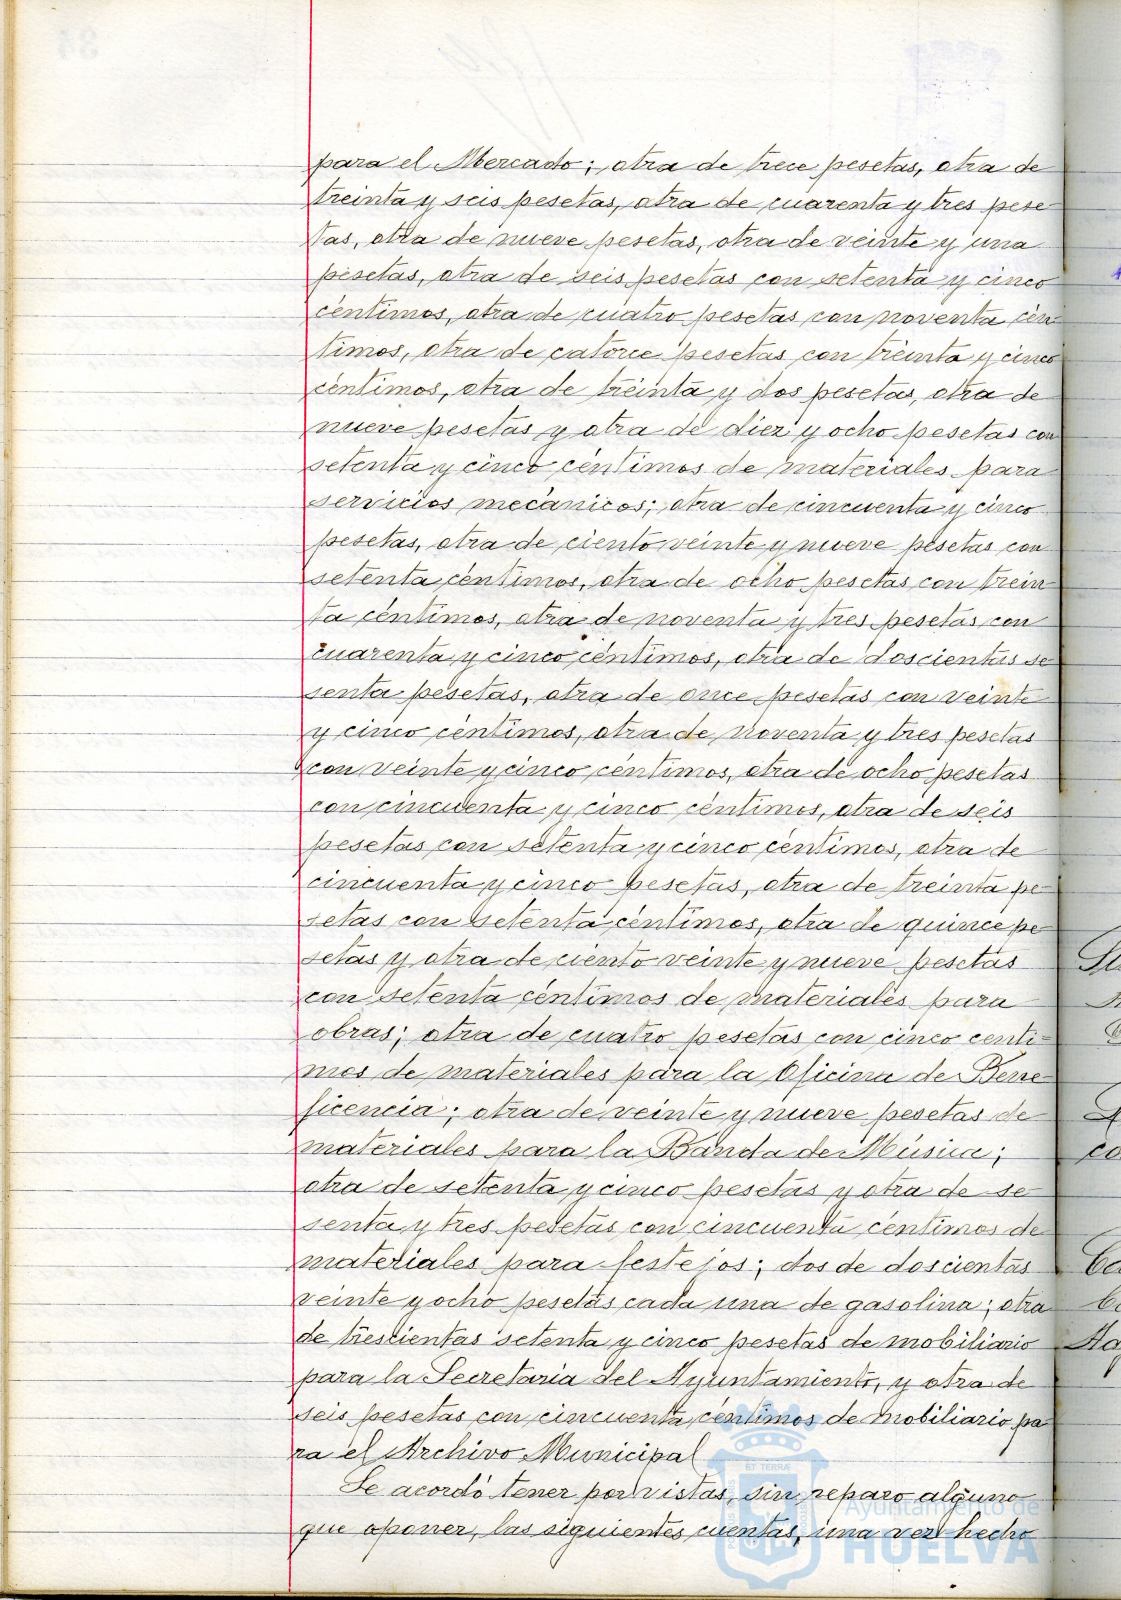 para el Mercado; otra de trece pesetas, otra de
treinta y seis pesetas, otra de cuarenta y tres pese-
tas, otra de nueve pesetas, otra de veinte y una
pesetas, otra de seis pesetas con setenta y cinco
céntimos, otra de cuatro pesetas con noventa cén-
timos, otra de catorce pesetas con treinta y cinco
céntimos, otra de treinta y dos pesetas, otra de
nueve pesetas y otra de diez y ocho pesetas con
setenta y cinco céntimos de materiales para
servicios mecánicos; otra de cincuenta y cinco
pesetas, otra de ciento veinte y nueve pesetas con
setenta céntimos, otra de ocho pesetas con trein-
ta céntimos, otra de noventa y tres pesetas con
cuarenta y cinco céntimos, otra de doscientas se-
senta pesetas, otra de once pesetas con veinte
y cinco céntimos, otra de noventa y tres pesetas
con veinte y cinco céntimos, otra de ocho pesetas
con cincuenta y cinco céntimos, otra de seis
pesetas con setenta y cinco céntimos, otra de
cincuenta y cinco pesetas, otra de treinta pe-
setas con setenta céntimos, otra de quince pe-
setas y otra de ciento veinte y nueve pesetas
con setenta céntimos de materiales para
obras; otra de cuatro pesetas con cinco centi-
mos de materiales para la Oficina de Bene-
ficencia; otra de veinte y nueve pesetas de
materiales para la Banda de Música;
otra de setenta y cinco pesetas y otra de se-
senta y tres pesetas con cincuenta céntimos de
materiales para festejos; dos de doscientas
veinte y ocho pesetas cada una de gasolina; otra
de trescientas setenta y cinco pesetas de mobiliario
para la Secretaria del Ayuntamiento, y otra de
seis pesetas con cincuenta céntimos de mobiliario pa-
ra el Archivo Municipal
Se acordó tener por vistas, sin reparo alguno
que oponer, las siguientes cuentas, una vez hecho
Ayuntamiento de
HUELVA